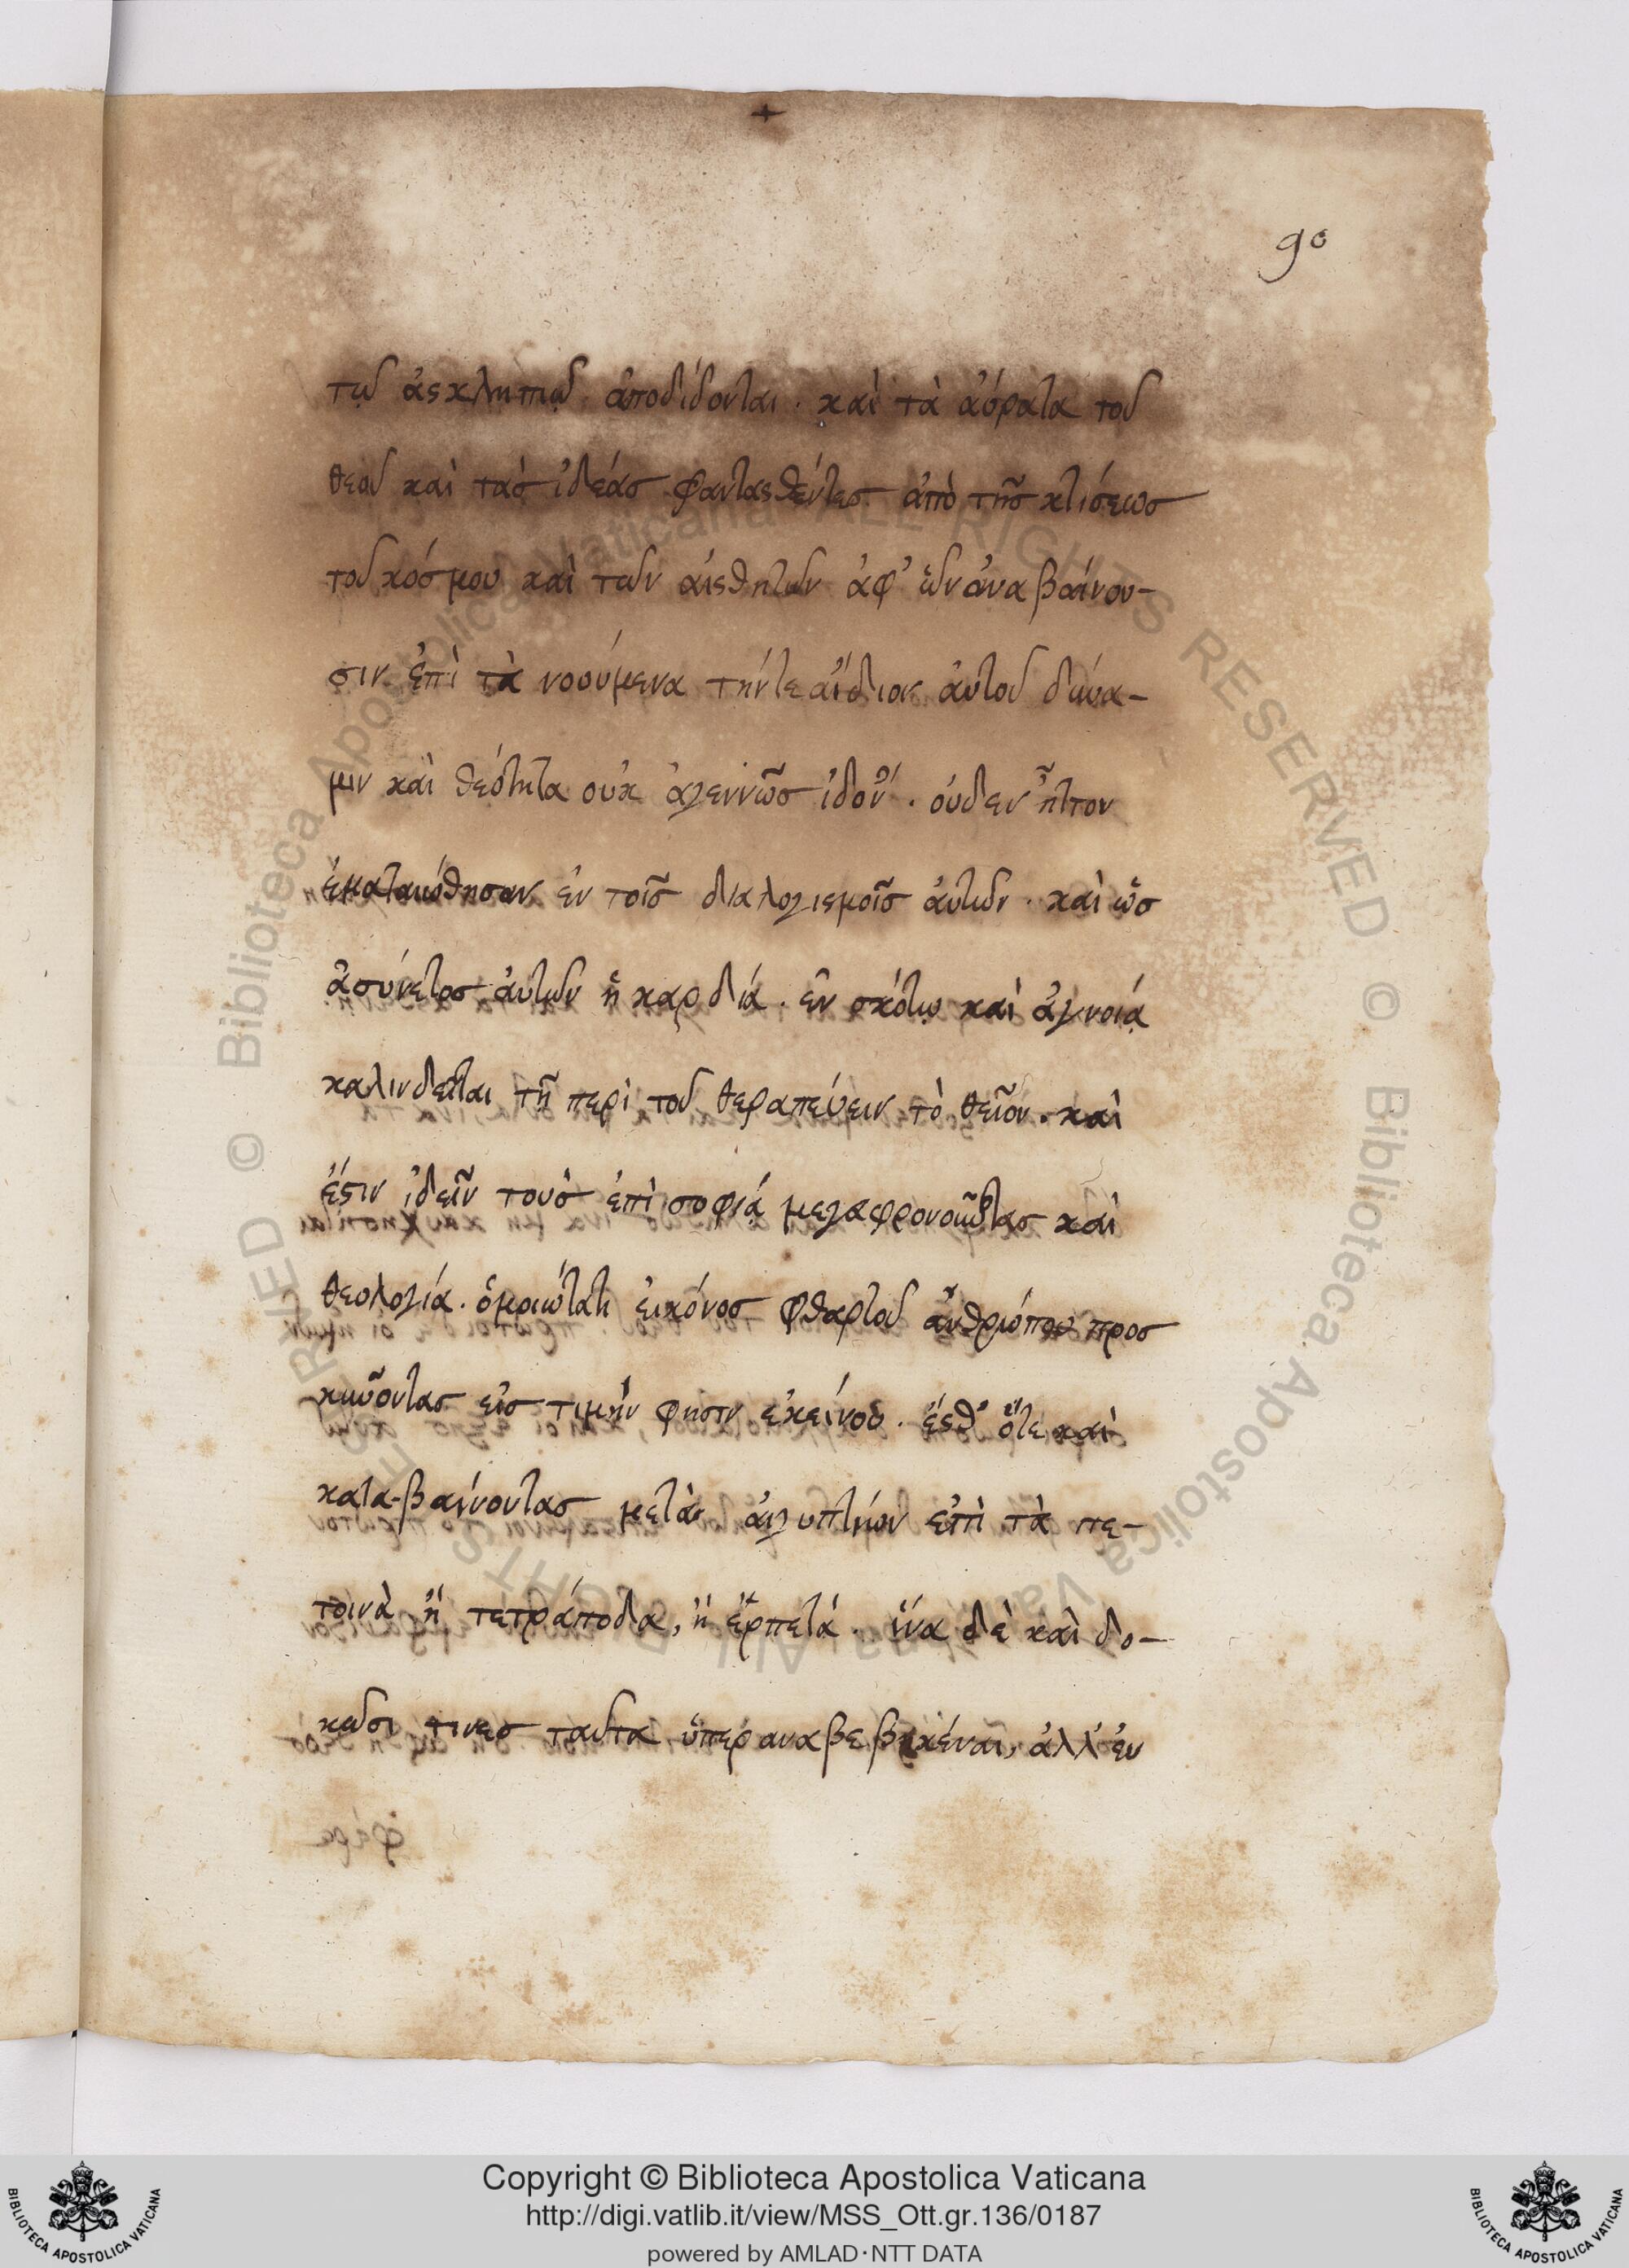 90
τῷ ἀσκληπιῷ ἀποδίδονται . καὶ τὰ ἀόρατα τοῦ
θεοῦ καὶ τὰς ἰδέας φαντασθέντες ἀπὸ τῆς κτίσεως
τοῦ κόσμου καὶ τῶν αἰσθητῶν ἀφ' ὧν ἀναβαίνου-
σιν ἐπὶ τὰ νοούμενα τήντε ἀΐδιον αὐτοῦ δύνα-
μιν καὶ θεότητα οὐκ ἀγεννῶς ἰδον . οὐδεν ἧττον
ἐματαιώθησαν ἐν τοῖς διαλογισμοῖς αὐτῶν . καὶ ὡς
ἀσύνετος αὐτῶν ἡ καρδία . ἐν σκότῳ καὶ ἀγνοίᾳ
καλινδεῖται τῇ περὶ τοῦ θεραπεύειν τὸ θεῖον . καὶ
ἔστιν ἰδεῖν τοὺς ἐπὶ σοφίᾳ μεγαφρονοῦντας καὶ
θεολογίᾳ . ὁμοιώτατη εἰκόνος φθαρτοῦ ἀνθρώπου προσ
κυνοῦντας εἰς τιμὴν φησιν ἐκείνου . ἔσθ' ὅτε καὶ
κατα-βαίνοντας μετὰ αἰγυπτίων ἐπὶ τὰ πε-
τοινὰ ἢ τετράποδα, ἢ ἑρπετά . ἵνα δὲ καὶ δο-
κῶσι τινες ταῦτα ὑπεραναβεβηκέναι, ἀλλ' ἐν
Copyright © Biblioteca Apostolica Vaticana
http://digi.vatlib.it/view/MSS_Ott.gr.136/0187
powered by AMLAD·NTT DATA
BIBLIOTECA APOSTOLICA VATICANA
BIBLIOTECA APOSTOLICA VATICANA